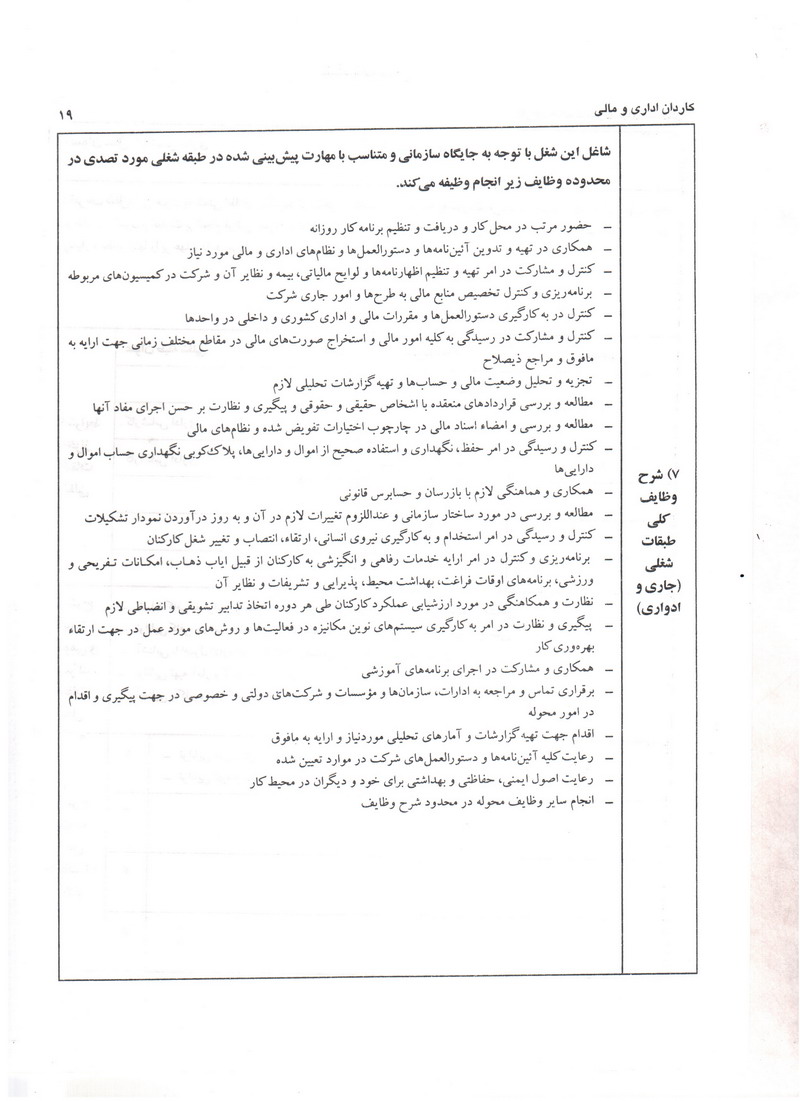 کاردان اداری و مالی
۱۹
شاغل این شغل با توجه به جایگاه سازمانی و متناسب با مهارت پیش‌بینی شده در طبقه شغلی مورد تصدی در
محدوده وظایف زیر انجام وظیفه می‌کند.
– حضور مرتب در محل کار و دریافت و تنظیم برنامه کار روزانه
– همکاری در تهیه و تدوین آئین‌نامه‌ها و دستورالعمل‌ها و نظام‌های اداری و مالی مورد نیاز
– کنترل و مشارکت در امر تهیه و تنظیم اظهارنامه‌ها و لوایح مالیاتی، بیمه و نظایر آن و شرکت در کمیسیون‌های مربوطه
– برنامه‌ریزی و کنترل تخصیص منابع مالی به طرح‌ها و امور جاری شرکت
– کنترل در به کارگیری دستورالعمل‌ها و مقررات مالی و اداری کشوری و داخلی در واحدها
– کنترل و مشارکت در رسیدگی به کلیه امور مالی و استخراج صورت‌های مالی در مقاطع مختلف زمانی جهت ارایه به
مافوق و مراجع ذیصلاح
– تجزیه و تحلیل وضعیت مالی و حساب‌ها و تهیه گزارشات تحلیلی لازم
– مطالعه و بررسی قراردادهای منعقده با اشخاص حقیقی و حقوقی و پیگیری و نظارت بر حسن اجرای مفاد آنها
– مطالعه و بررسی و امضاء اسناد مالی در چارچوب اختیارات تفویض شده و نظام‌های مالی
– کنترل و رسیدگی در امر حفظ، نگهداری و استفاده صحیح از اموال و دارایی‌ها، پلاک‌کوبی نگهداری حساب اموال و
دارایی‌ها
– همکاری و هماهنگی لازم با بازرسان و حسابرس قانونی
– مطالعه و بررسی در مورد ساختار سازمانی و عنداللزوم تغییرات لازم در آن و به روز درآوردن نمودار تشکیلات
– کنترل و رسیدگی در امر استخدام و به کارگیری نیروی انسانی، ارتقاء، انتصاب و تغییر شغل کارکنان
– برنامه‌ریزی و کنترل در امر ارایه خدمات رفاهی و انگیزشی به کارکنان از قبیل ایاب ذهاب، امکانات تفریحی و
ورزشی، برنامه‌های اوقات فراغت، بهداشت محیط، پذیرایی و تشریفات و نظایر آن
– نظارت و همکاهنگی در مورد ارزشیابی عملکرد کارکنان طی هر دوره اتخاذ تدابیر تشویقی و انضباطی لازم
– پیگیری و نظارت در امر به کارگیری سیستم‌های نوین مکانیزه در فعالیت‌ها و روش‌های مورد عمل در جهت ارتقاء
بهره‌وری کار
– همکاری و مشارکت در اجرای برنامه‌های آموزشی
– برقراری تماس و مراجعه به ادارات، سازمان‌ها و مؤسسات و شرکت‌های دولتی و خصوصی در جهت پیگیری و اقدام
در امور محوله
– اقدام جهت تهیه گزارشات و آمارهای تحلیلی موردنیاز و ارایه به مافوق
– رعایت کلیه آئین‌نامه‌ها و دستورالعمل‌های شرکت در موارد تعیین شده
– رعایت اصول ایمنی، حفاظتی و بهداشتی برای خود و دیگران در محیط کار
– انجام سایر وظایف محوله در محدود شرح وظایف
۷) شرح
وظایف
کلی
طبقات
شغلی
(جاری و
ادواری)